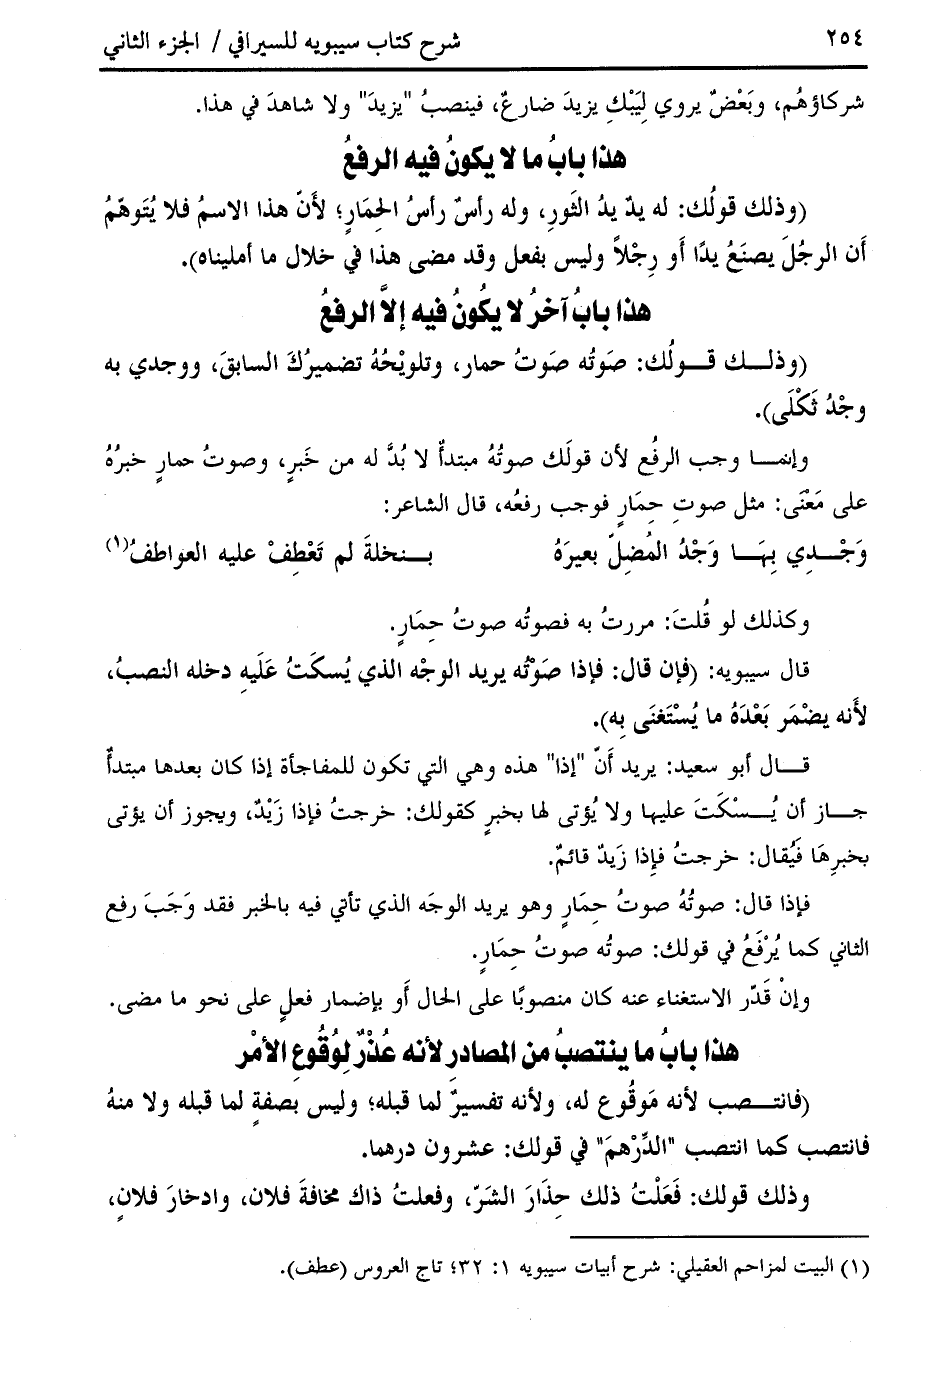 ٢٥٤ شرح كتاب سيبويه للسيرافي / الجزء الثاني
شركاؤهُم، وبَعْضٌ يروي لِيَبْكِ يزيدَ ضارعٌ، فينصبُ "يزيدَ" ولا شاهدَ في هذا.
هذا بابُ ما لا يكونُ فيه الرفعُ
(وذلك قولُك: له يدٌ يدُ الثورِ، وله رأسٌ رأسُ الحِمَارِ؛ لأنّ هذا الاسمُ فلا يُتَوهّمُ
أن الرجُلَ يصنَعُ يدًا أو رِجْلاً وليس بفعل وقد مضى هذا في خلال ما أمليناه).
هذا بابُ آخرُ لا يكُونُ فيه إلاَّ الرفعُ
(وذلــك قــولُك: صَوتُه صَوتُ حمار، وتلويْحُهُ تضميرُكَ السابقَ، ووجدي به
وجْدُ ثَكْلَى).
وإنمــا وجب الرفُع لأن قولَك صوتُهُ مبتدأٌ لا بُدَّ له من خَبرٍ، وصوتُ حمارٍ خبرُهُ
على مَعْنَى: مثل صوتِ حِمَارٍ فوجب رفعُه، قال الشاعر:
وَجْــدِي بِهَــا وَجْدُ المُضِلّ بعيرَهُ بــنخلةَ لم تَعْطِفْ عليه العواطفُ(١)
وكذلك لو قُلتَ: مررتُ به فصوتُه صوتُ حِمَارٍ.
قال سيبويه: (فإن قال: فإذا صَوْتُه يريد الوجْه الذي يُسكَتُ عَلَيهِ دخله النصبُ،
لأَنه يضْمَر بَعْدَهُ ما يُسْتَغنَى به).
قــال أبو سعيد: يريد أَنّ "إذا" هذه وهي التي تكون للمفاجأة إذا كان بعدها مبتدأٌ
جــاز أن يُــسْكَتَ عليها ولا يُؤتى لها بخبرٍ كقولك: خرجتُ فإذا زَيْدٌ، ويجوز أن يؤتى
بخبرِهَا فيُقال: خرجتُ فإذا زَيدٌ قائمٌ.
فإذا قال: صوتُهُ صوتُ حِمَارٍ وهو يريد الوجَه الذي تأتي فيه بالخبر فقد وَجَبَ رفع
الثاني كما يُرْفَعُ في قولك: صوتُه صوتُ حِمَارٍ.
وإنْ قَدّر الاستغناء عنه كان منصوبًا على الحال أو بإضمار فعلٍ على نحو ما مضى.
هذا بابُ ما ينتصبُ من المصادر لأنه عُذْرٌ لِوُقُوعِ الأَمْر
(فانتــصب لأنه مَوقُوع له، ولأنه تفسيرٌ لما قبله؛ وليس بصفةٍ لما قبله ولا منهُ
فانتصب كما انتصب "الدِّرْهمَ" في قولك: عشرون درهما.
وذلك قولك: فَعَلْتُ ذلك حِذَارَ الشرّ، وفعلتُ ذاك مخافةَ فلان، وادخارَ فلانٍ،
(١) البيت لمزاحم العقيلي: شرح أبيات سيبويه ١: ٣٢؛ تاج العروس (عطف).